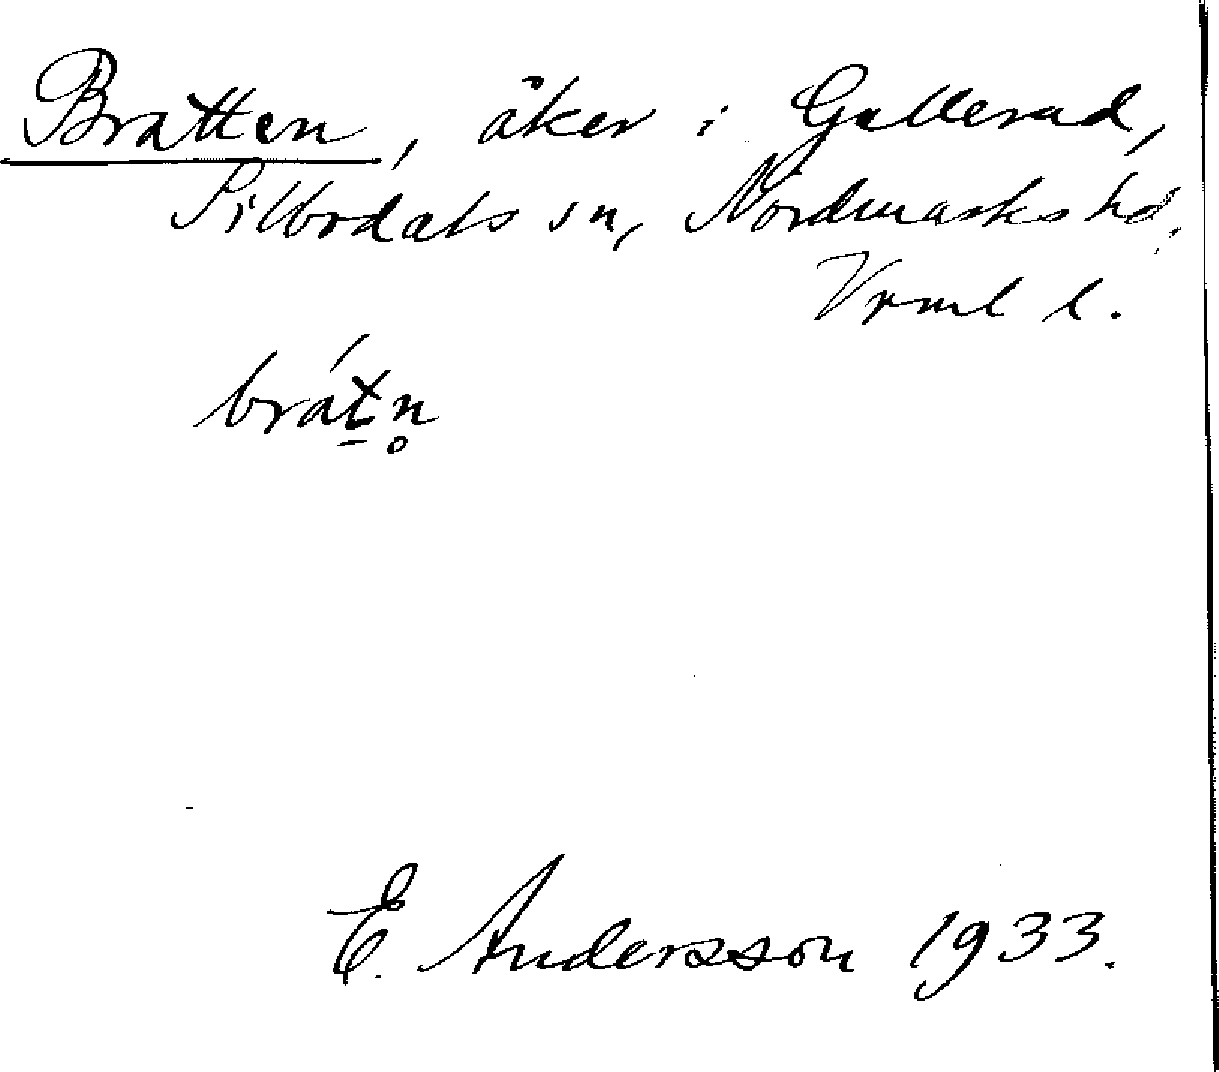 Bratten, åker i Gallerud,
Silbodals sn, Nordmarks hd.
Vrml l.
brát̠n̥
E. Andersson 1933.